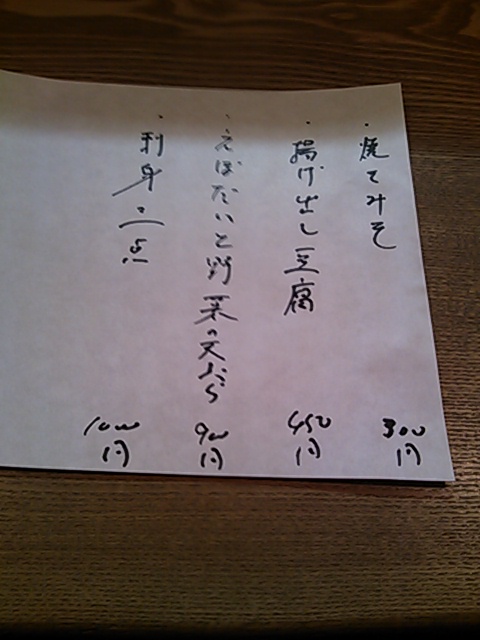 ・焼てみそ 300円
・揚げ出し豆腐 450円
・えぼだいと野菜の天ぷら 900円
・刺身二点 1000円